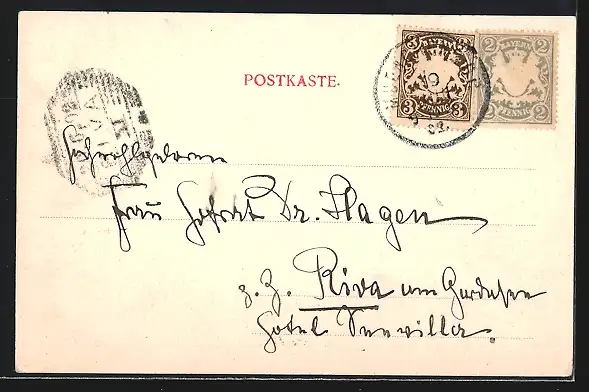 POSTKASTE.
3 BAYERN 3
PFENNIG
2 BAYERN 2
PFENNIG
Hochwohlgeboren
Frau Hofrat Dr. Hagen
z. Z. Riva am Gardasee
Hotel Seevilla.